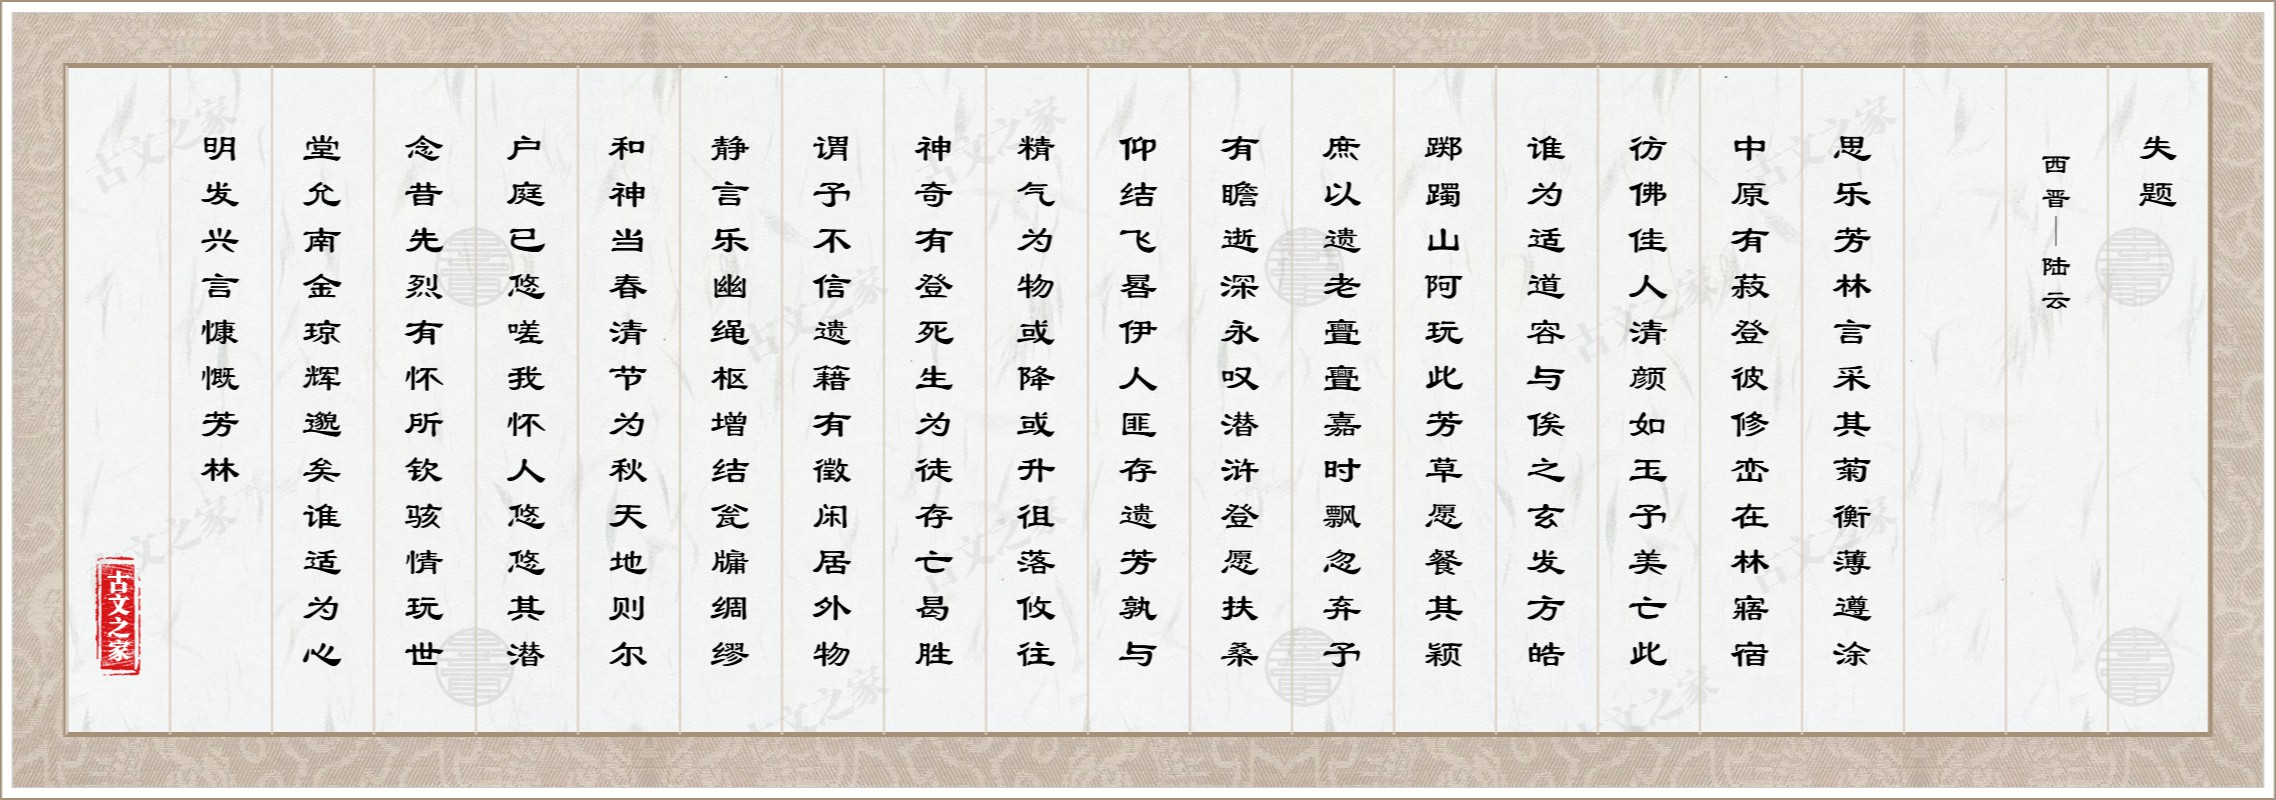 失题
西晋—陆云
思乐芳林言采其菊衡薄遵涂
中原有菽登彼修峦在林寤宿
彷佛佳人清颜如玉予美亡此
谁为适道容与俟之玄发方皓
踯躅山阿玩此芳草愿餐其颖
庶以遗老亹亹嘉时飘忽弃予
有瞻逝深永叹潜浒登愿扶桑
仰结飞晷伊人匪存遗芳孰与
精气为物或降或升徂落攸往
神奇有登死生为徒存亡曷胜
谓予不信遗籍有徵闲居外物
静言乐幽绳枢增结瓮牖绸缪
和神当春清节为秋天地则尔
户庭已悠嗟我怀人悠悠其潜
念昔先烈有怀所钦骇情玩世
堂允南金琼辉邈矣谁适为心
明发兴言慷慨芳林
古文之家